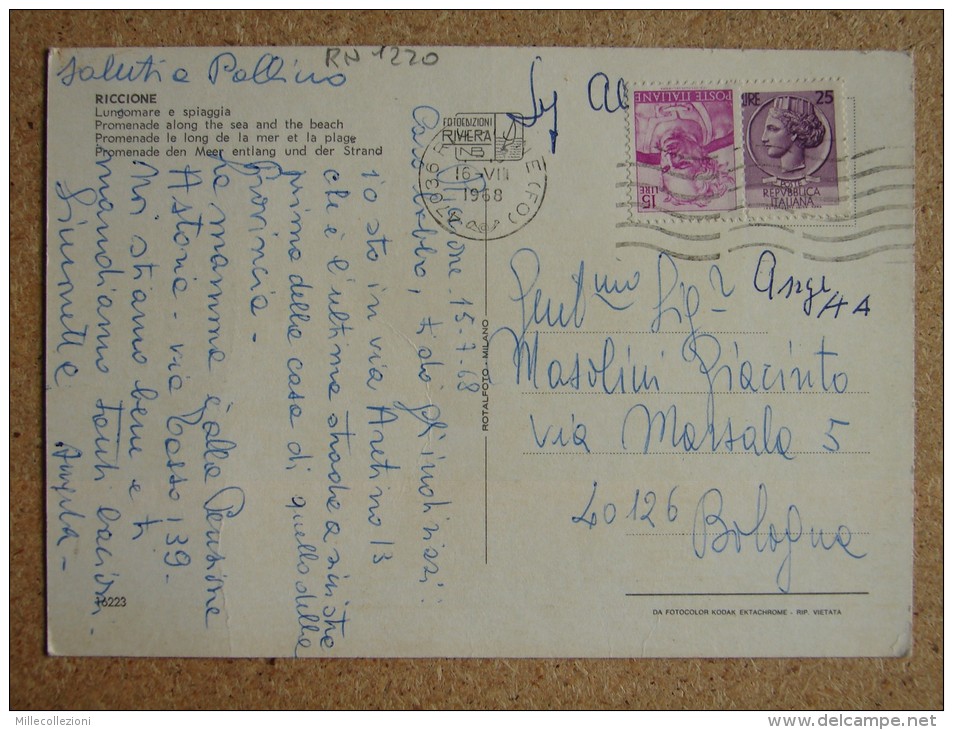 RN 1220
saluti a Pallino
RICCIONE
Lungomare e spiaggia
Promenade along the sea and the beach
Promenade le long de la mer et la plage
Promenade den Meer entlang und der Strand
Riccione 15-7-68
Caro babbo, ti do gli indirizzi:
io sto in via Aretino 13
che è l'ultima strada a sinistra
prima della casa di quello della
Provincia -
la mamma è alla Pensione
Astoria - via Tasso 139.
Noi stiamo bene e ti
mandiamo tanti bacioni -
Giunette
Angela -
76223
FOTOEDIZIONI
RIVIERA
NB
16-VIII
1968
47036
(FO)
ROTALFOTO - MILANO
POSTE ITALIANE
LIRE 15
LIRE 25
POSTE
REPVBBLICA
ITALIANA
Gent.mo Sig.r
Masolini Giacinto
via Marsala 5
40126 Bologna
DA FOTOCOLOR KODAK EKTACHROME - RIP. VIETATA
Millecollezioni
www.delcampe.net